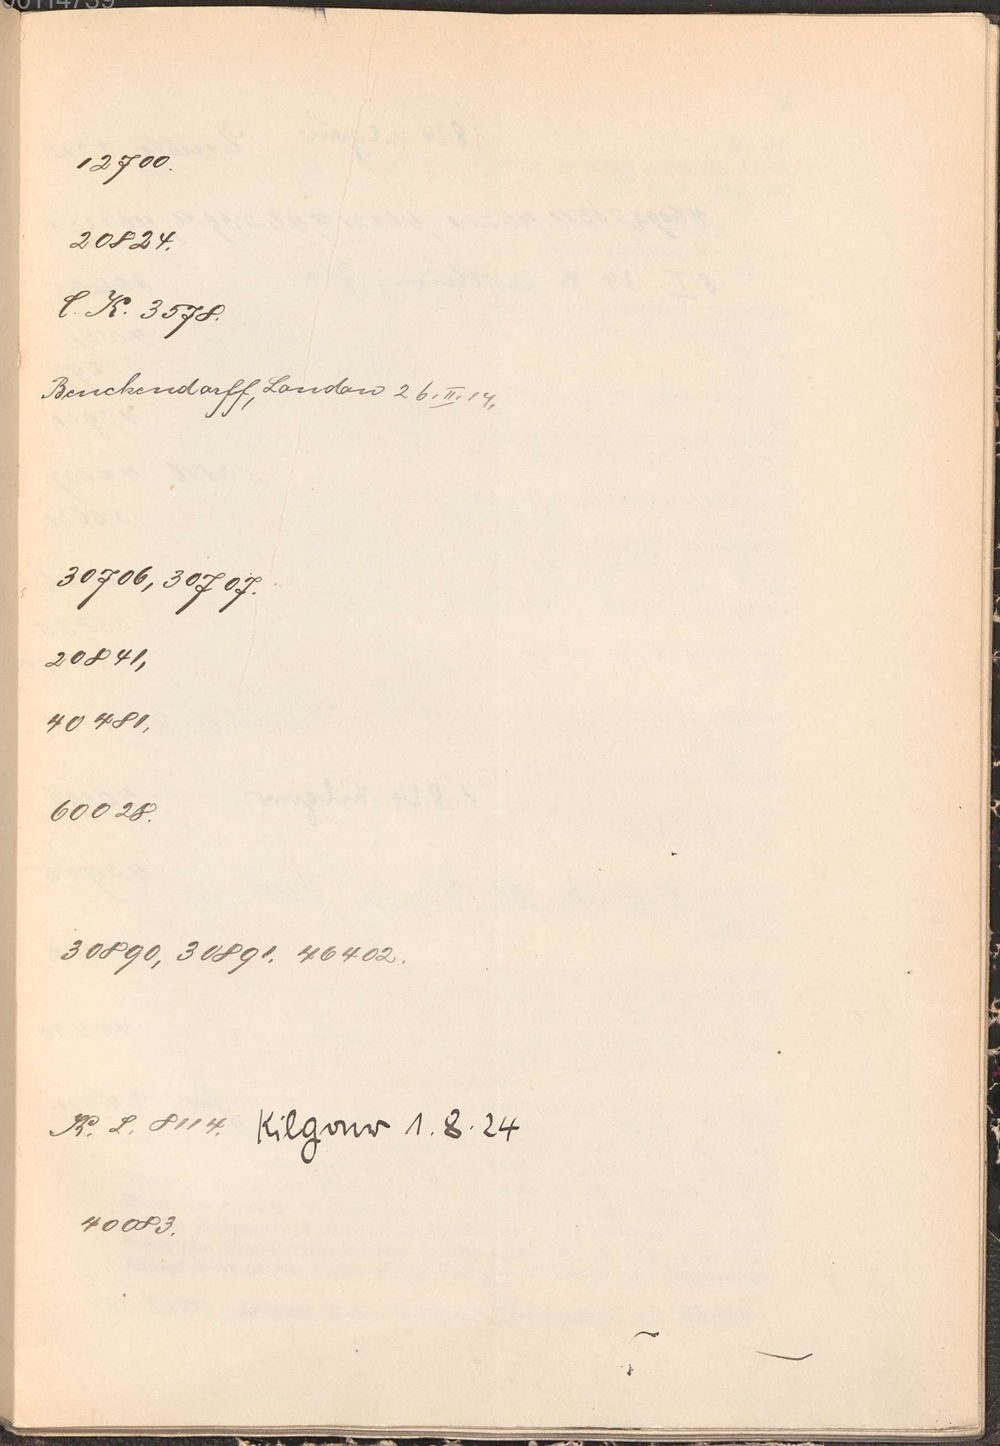 12700.
20824.
C. K. 3578.
Benckendorff, London 26. II. 14.
30706, 30707.
20841,
40481,
60028.
30890, 30891. 46402.
K. L. 8114. Kilgour 1.8.24
40083.